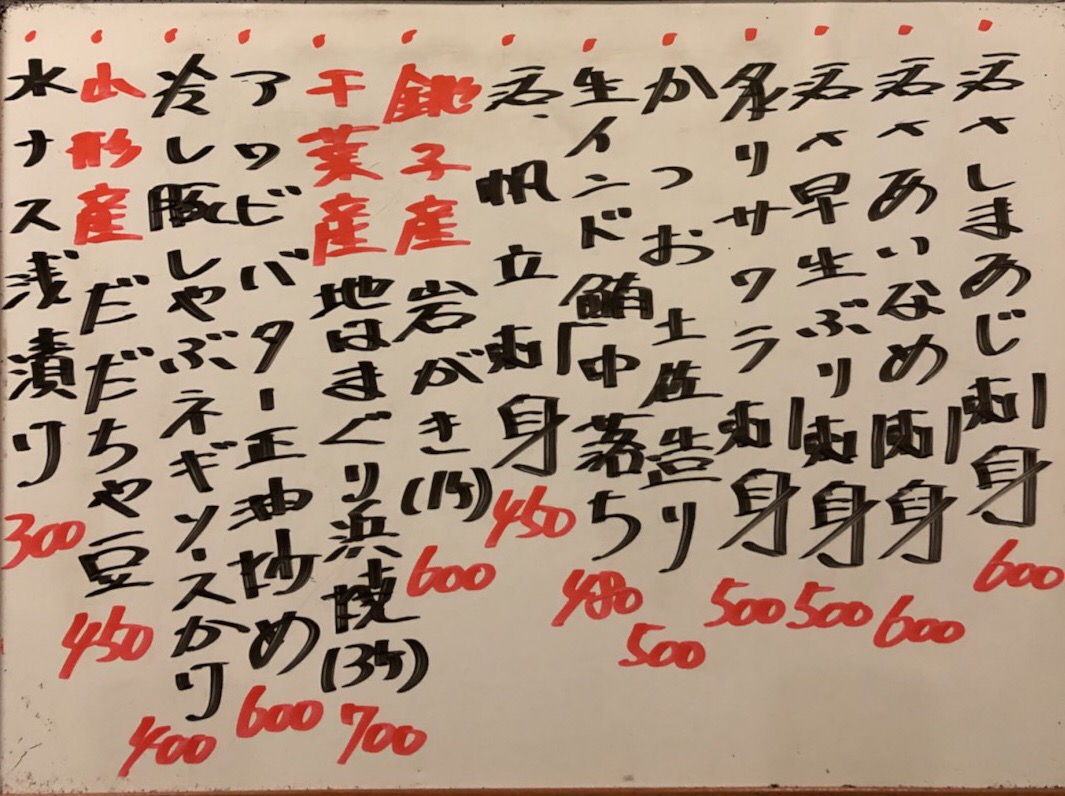 活〆しまあじ刺身 600
活〆あいなめ刺身 600
活〆早生ぶり刺身 500
炙りサワラ刺身 500
かつお土佐造り 500
生インド鮪中落ち 480
活、帆立刺身 450
銚子産岩がき(1ケ) 600
千葉産地はまぐり浜焼(3ケ) 700
アワビバター正油炒め 600
冷し豚しゃぶネギソースかけ 400
山形産だだちゃ豆 450
水ナス浅漬け 300